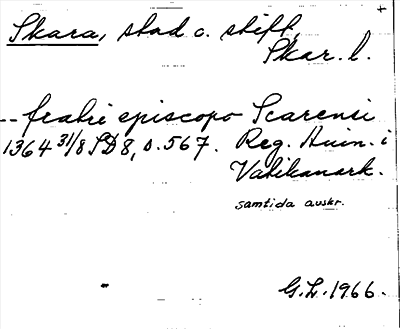 Skara, stad o. stift,
Skar. l.
-- fratri episcopo Scarensi
1364 31/8 SD 8, s. 567. Reg. Avin. i
Vatikanark.
samtida avskr.
G.L. 1966.